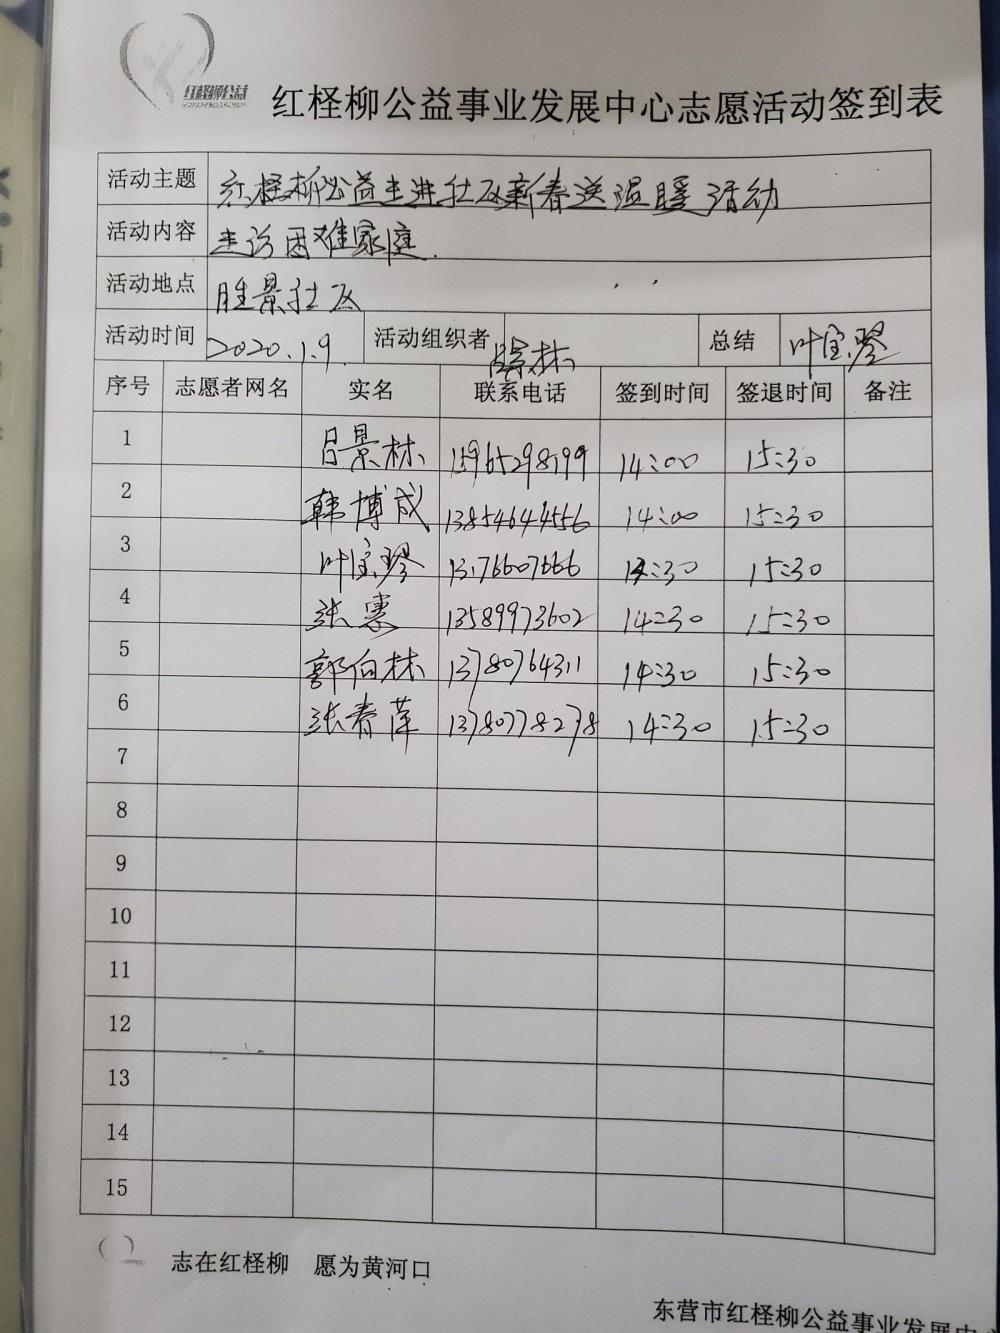 红柽柳公益
红柽柳公益事业发展中心志愿活动签到表
活动主题 红柽柳公益走进社区新春送温暖活动
活动内容 走访困难家庭.
活动地点 胜景社区
活动时间 2020.1.9. 活动组织者 林 总结 叶宝琴
序号 志愿者网名 实名 联系电话 签到时间 签退时间 备注
1 吕景林 15965298799 14:00 15:30
2 韩博成 13854644556 14:00 15:30
3 叶宝琴 13176607666 14:30 15:30
4 张惠 13589973602 14:30 15:30
5 郭向林 13780764311 14:30 15:30
6 张春萍 13780778278 14:30 15:30
7
8
9
10
11
12
13
14
15
志在红柽柳 愿为黄河口
东营市红柽柳公益事业发展中